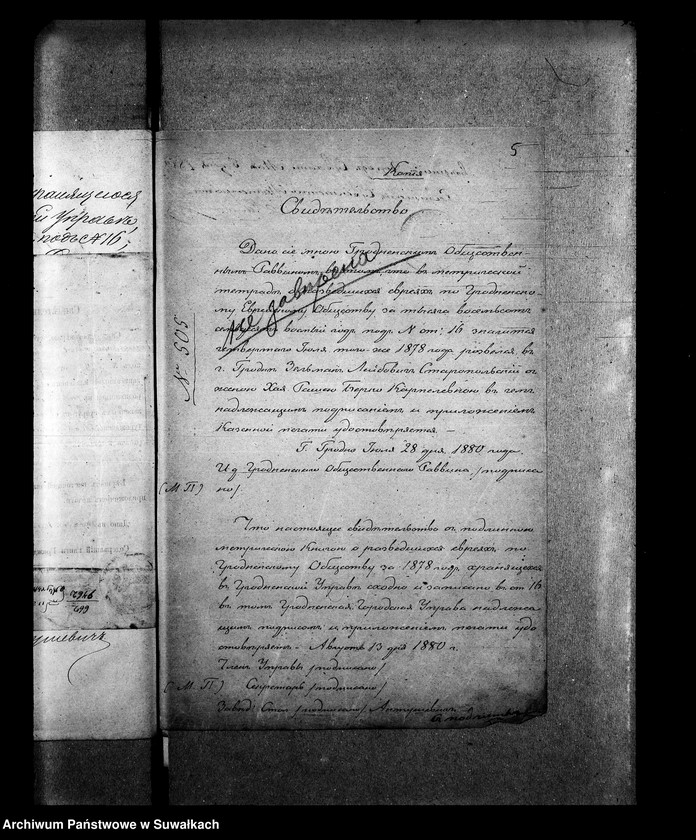 5
Копія
Свидѣтельство
Дано сіе мною Гродненскимъ Обществен-
нымъ Раввиномъ въ томъ, что въ метрической
тетради о разведшихся евреяхъ по Гродненско-
му Еврейскому Обществу за тысяча восемьсотъ
семьдесятъ восьмый годъ подъ N от: 16 значится
четвертаго Іюля того-же 1878 года развелся въ
г. Гродно Зельманъ Лейбовичъ Старопольскій съ
женою Хая Рашею Берко Карпелевною въ чемъ
надлежащимъ подписаніемъ и приложеніемъ
Казенной печати удостовѣряется. —
Г. Гродно Іюля 28 дня 1880 года.
И д Гродненскаго Общественнаго Раввина /подписа
(М П) но/.
не завѣрена
№ 505
Что настоящее свидѣтельство съ подлинною
метрическою Книгою о разведшихся евреяхъ по
Гродненскому Обществу за 1878 годъ, хранящеюся
въ Гродненской Управѣ сходно и записано въ ст 16
въ томъ Гродненская Городская Управа надлежа-
щимъ подписомъ и приложеніемъ печати удо
стовѣряетъ. — Августа 13 дня 1880 г.
Членъ Управы /подписано/
(М. П) Секретарь /подписано/
Завѣд: Стол /подписано/ Антушевичъ
хранящегося
й Управѣ,
подъ № 16,
ушевичъ
Archiwum Państwowe w Suwałkach